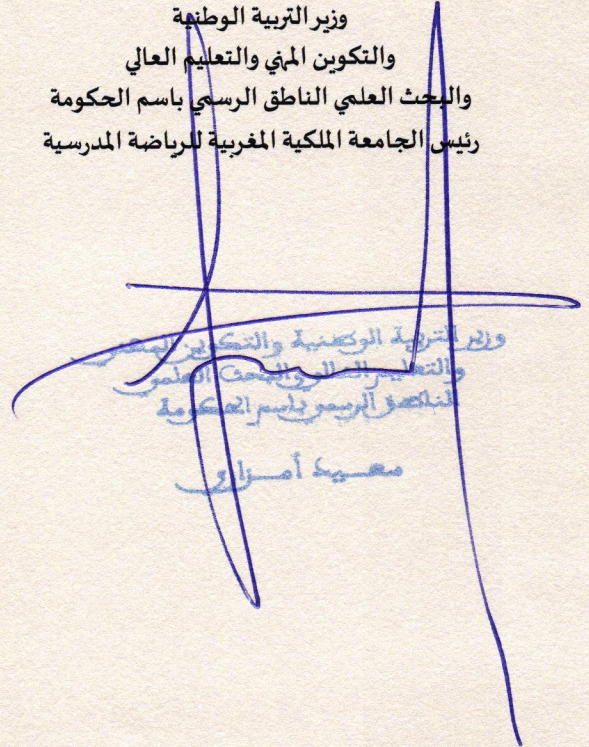 وزير التربية الوطنية
والتكوين المهني والتعليم العالي
والبحث العلمي الناطق الرسمي باسم الحكومة
رئيس الجامعة الملكية المغربية للرياضة المدرسية
وزير التربية الوطنية والتكوين المهني
والتعليم العالي والبحث العلمي
الناطق الرسمي باسم الحكومة
سعيد أمزازي